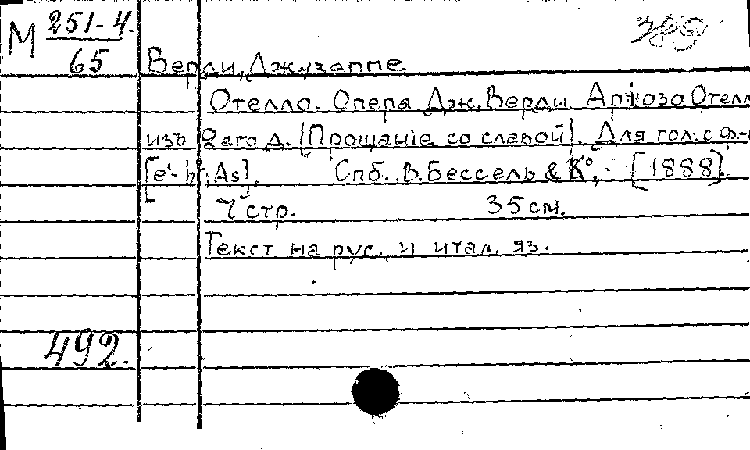 М 251-4.
65
389
Верди, Джузеппе
Отелло. Опера Дж. Верди. Аріозо Отелл
изъ 2аго д. [Прощаніе со славой]. Для гол. с ф-
[e'-h'; As]. Спб. В. Бессель & К°, [1888].
7 стр. 35 см.
Текст на рус. и итал. яз.
492.